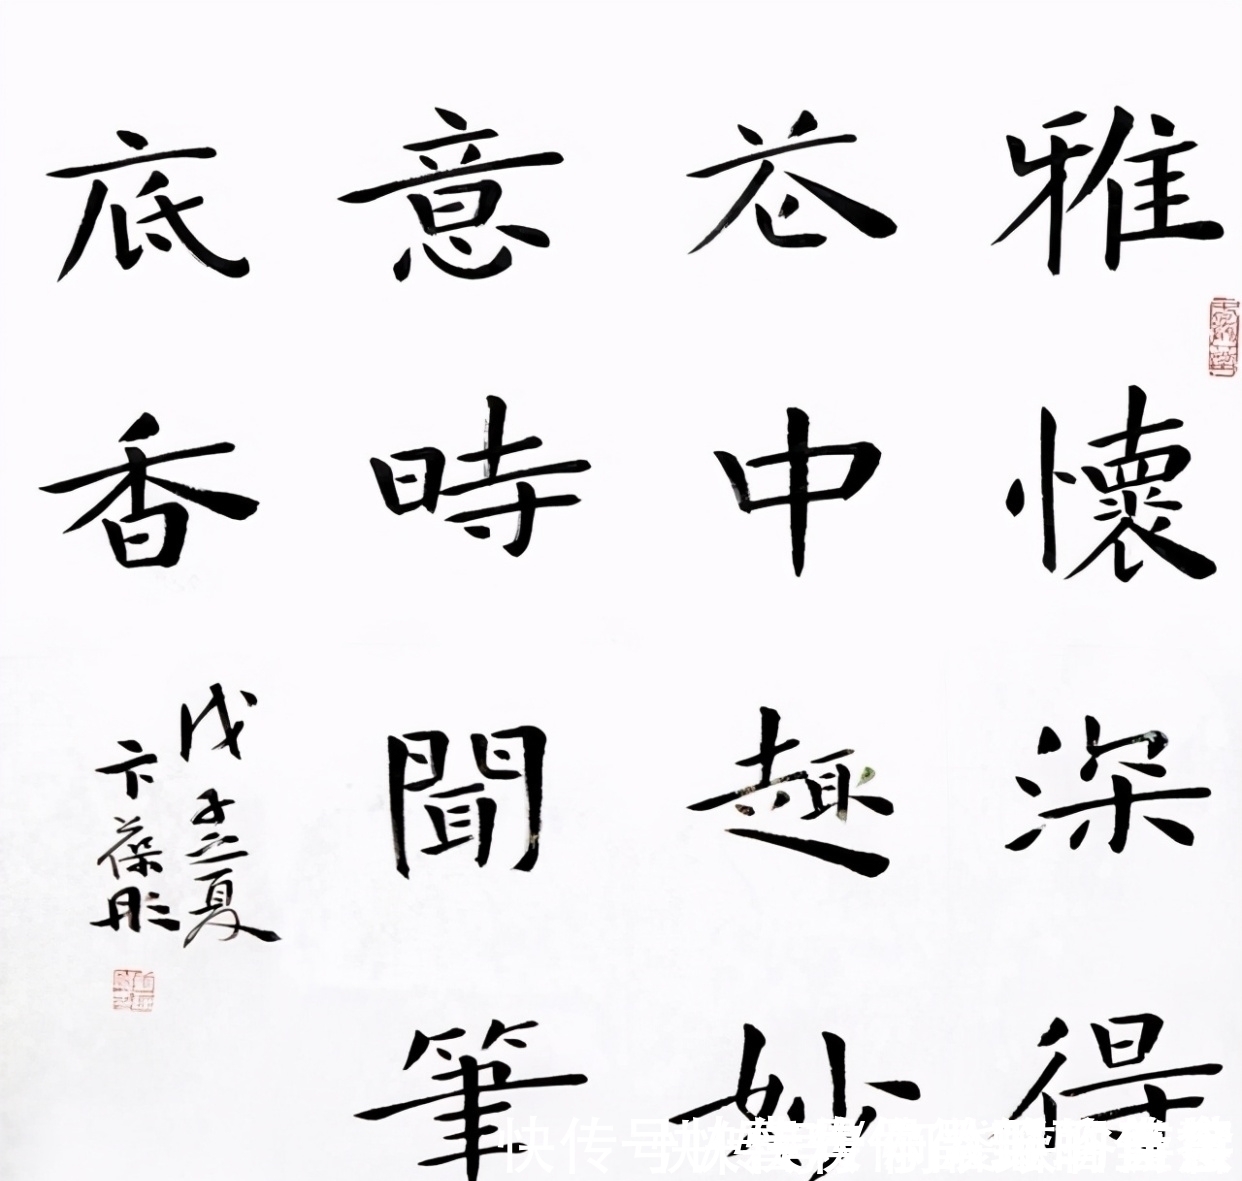 雅懷深得
花中趣妙
意時聞筆
底香
戊子立夏
卞葆彤
快传号